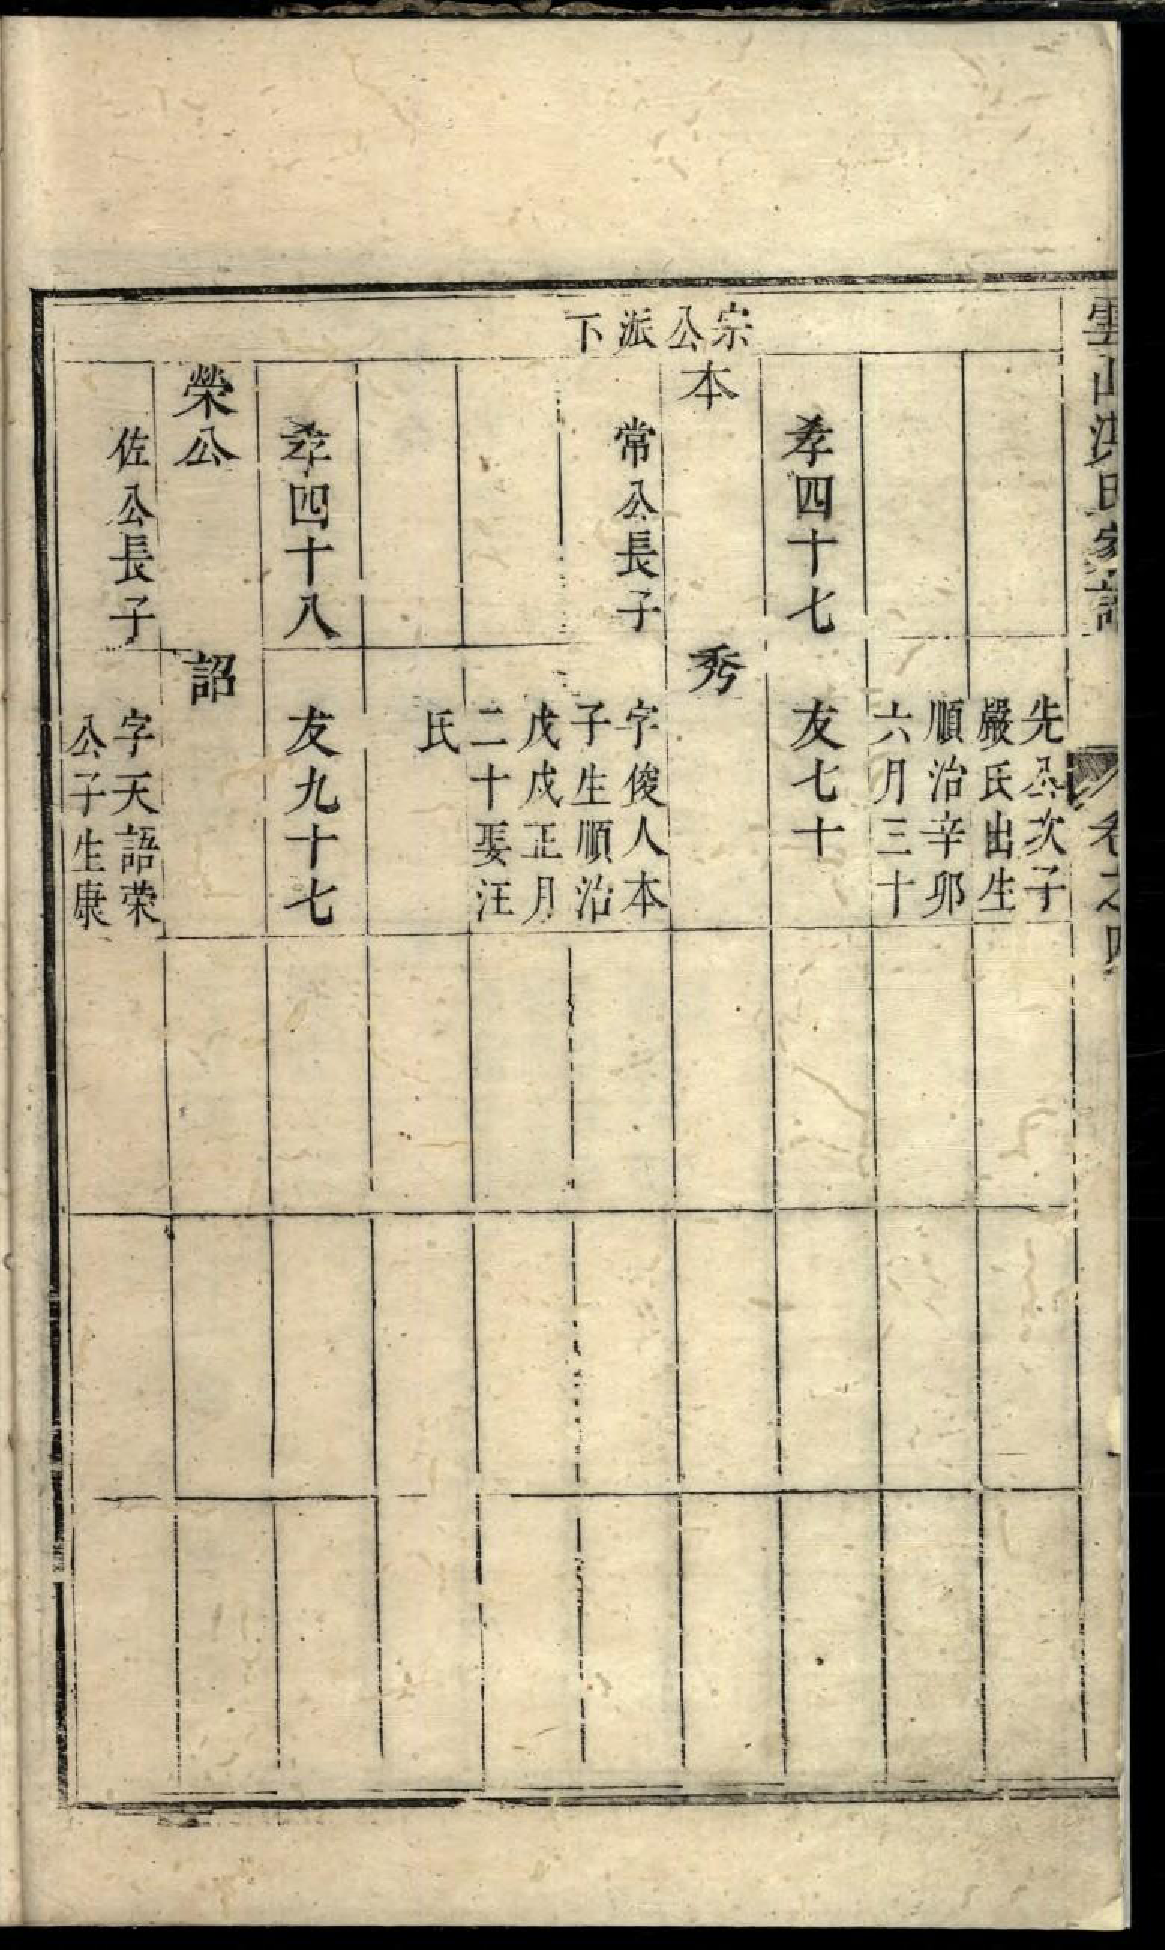 雲山洪氏家譜
卷之四
宗公派下
先公次子
嚴氏出生
順治辛卯
六月三十
孝四十七
友七十
本
秀
常公長子
字俊人本
子生順治
戊戌正月
二十娶汪
氏
孝四十八
友九十七
榮公
詔
佐公長子
字天語榮
公子生康